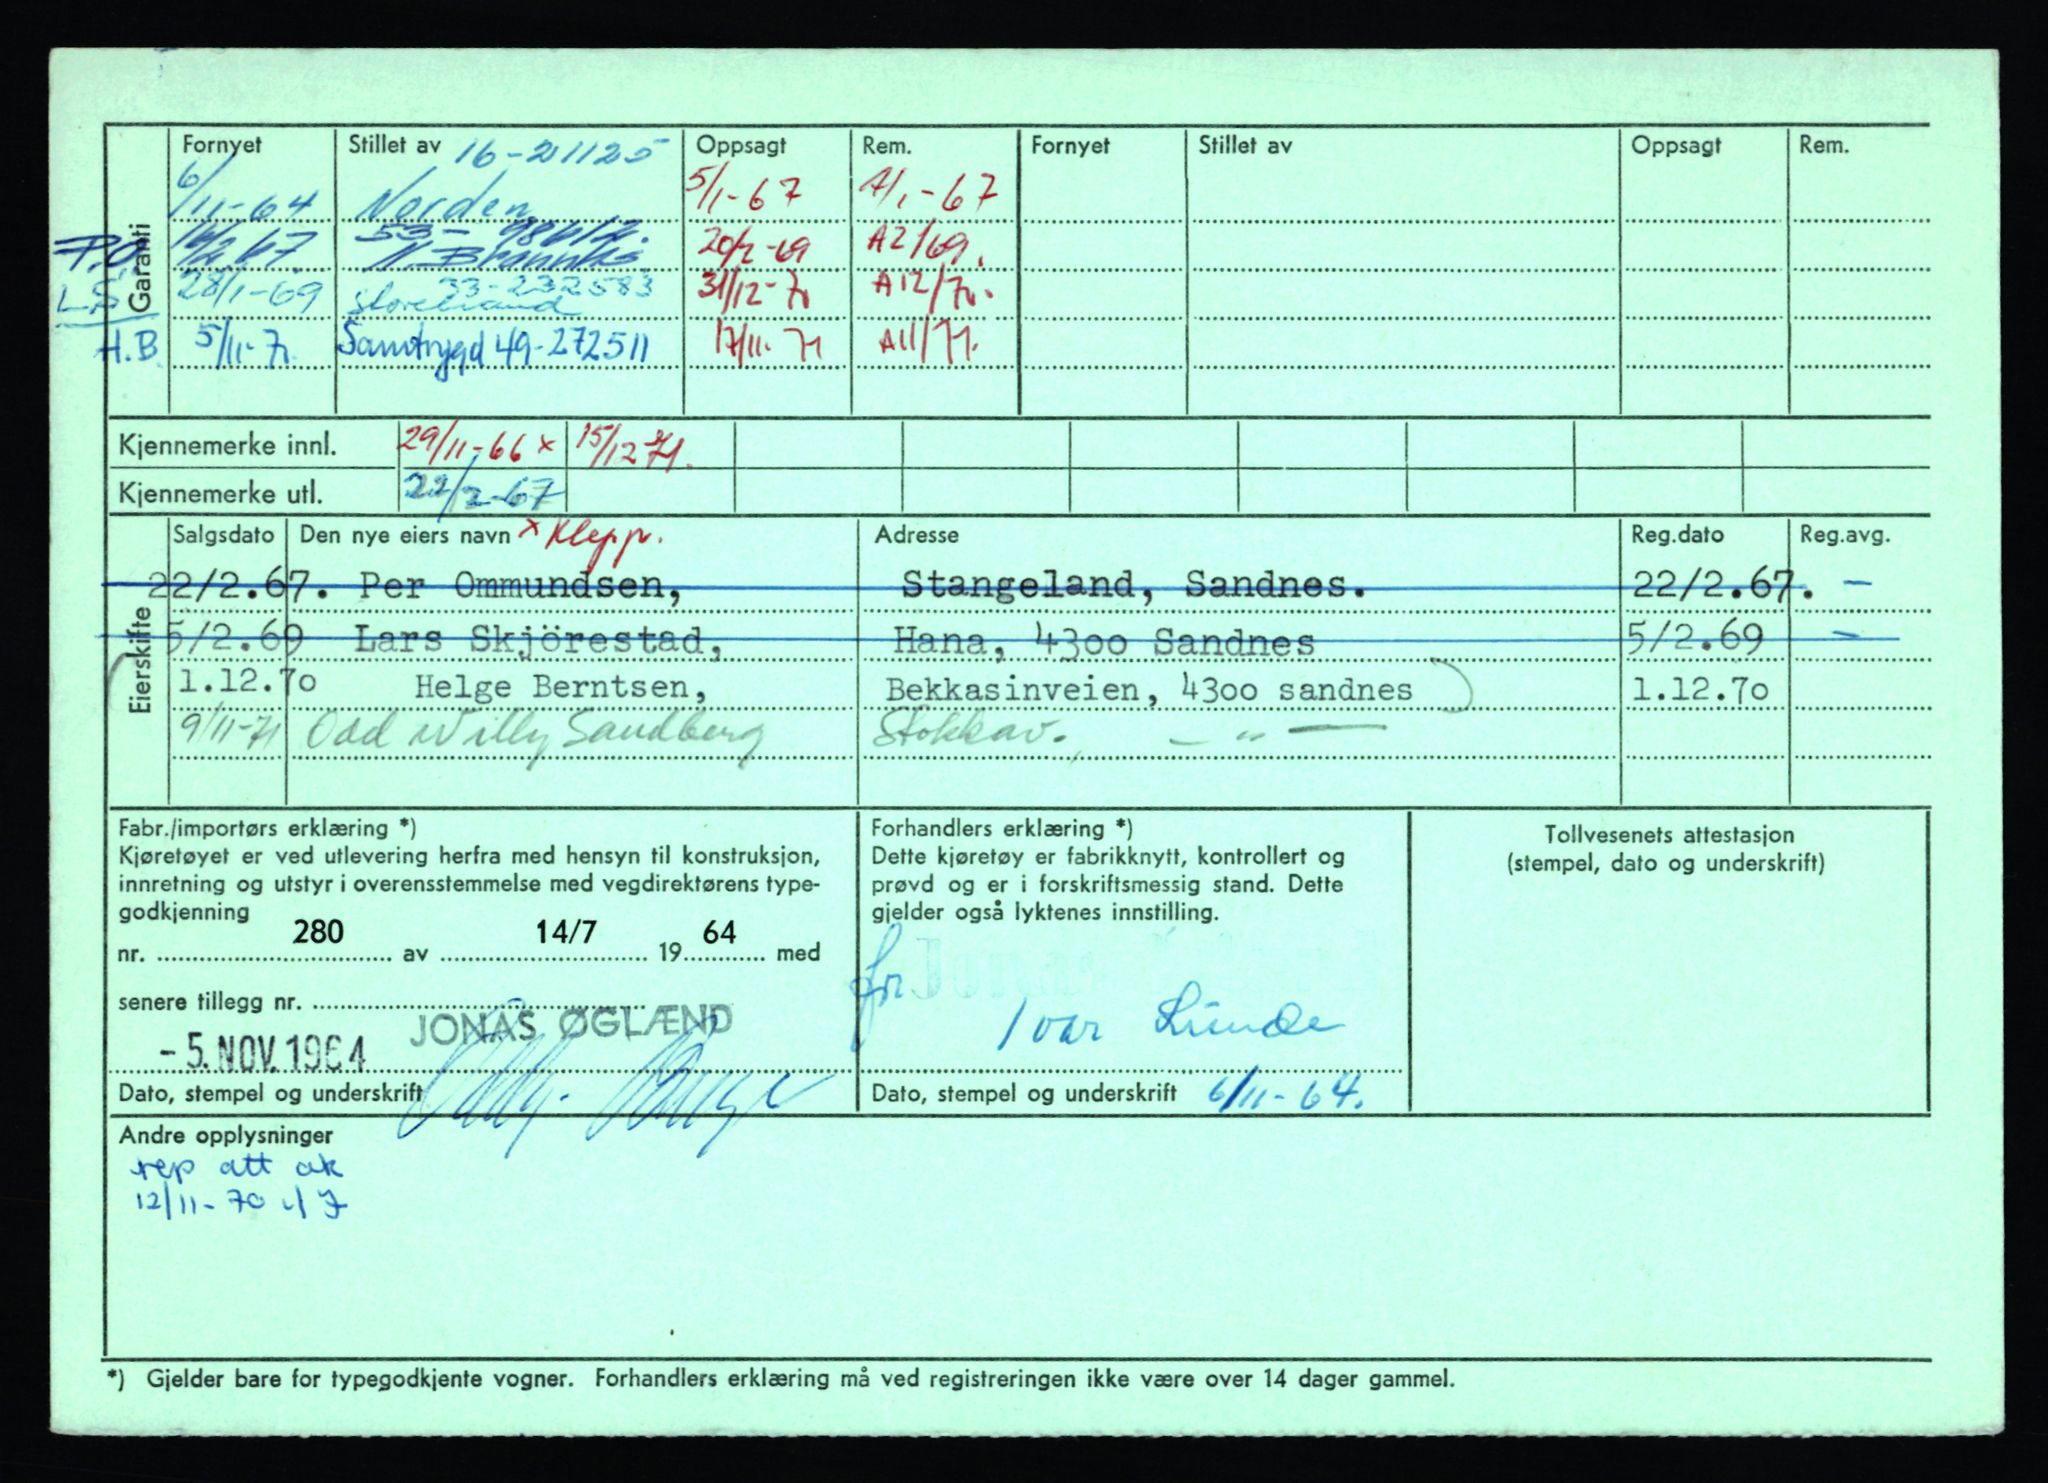 Fornyet Stillet av 16-21125 Oppsagt Rem. Fornyet Stillet av Oppsagt Rem.
6/11-64 Norden 5/1-67 7/1-67
Garanti
P.O. 14/2 67. 53- N Brannks 20/2-69 A2/69.
L.S 28/1-69 33-232583 Storebrand 31/12-70 A12/70.
H.B 5/11-71 Samtrygd 49-272511 17/11-71 A11/71.
Kjennemerke innl. 29/11-66 x 15/12 71.
Kjennemerke utl. 22/2-67
Eierskifte
Salgsdato Den nye eiers navn x Klepp. Adresse Reg.dato Reg.avg.
22/2.67. Per Ommundsen, Stangeland, Sandnes. 22/2.67. -
5/2.69 Lars Skjörestad, Hana, 4300 Sandnes 5/2.69 -
1.12.70 Helge Berntsen, Bekkasinveien, 4300 sandnes 1.12.70
9/11-71 Odd Willy Sandberg Stokkav. — " —
Fabr./importørs erklæring *)
Kjøretøyet er ved utlevering herfra med hensyn til konstruksjon,
innretning og utstyr i overensstemmelse med vegdirektørens type-
godkjenning
nr. 280 av 14/7 1964 med
senere tillegg nr.
JONAS ØGLÆND
- 5. NOV. 1964
Dato, stempel og underskrift
Forhandlers erklæring *)
Dette kjøretøy er fabrikknytt, kontrollert og
prøvd og er i forskriftsmessig stand. Dette
gjelder også lyktenes innstilling.
for Jonas
Ivar Lunde
Dato, stempel og underskrift 6/11-64.
Tollvesenets attestasjon
(stempel, dato og underskrift)
Andre opplysninger
rep att ok
12/11-70
*) Gjelder bare for typegodkjente vogner. Forhandlers erklæring må ved registreringen ikke være over 14 dager gammel.